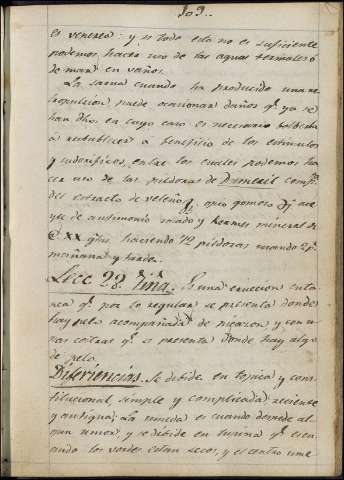 109..
es venerea: y si todo esto no es suficiente
podemos hacer uso de las aguas termales ó
de mar en vaños.
La sarna cuando ha producido una re
repulsion puede ocasionar daños q.e ya se
han dho. en cuyo caso es necesario bolberla
á restablecer á beneficio de los estimulos
y sudorificos, entre los cuales podemos ha
cer uso de las pildoras de Dumeril comp.tas
del estracto de veleño opio gomoso
de antimonio y kermes mineral de
XX g.s haciendo 72 pildoras usando 2 p.r
mañana y tarde.
Lecc 22. Tiña. Es una erucion cuta
nea q.e por lo regular se presenta donde
hay pelo acompañada de picazon y con u
nas costras q.e se presenta donde hay algo
de pelo
Diferiencias. Se dibide en topica y cons
titucional simple y complicada reciente
y antigua. La umeda es cuando despide al
gun umor y se dibide en
ando los vordes estan secos, y el centro ume